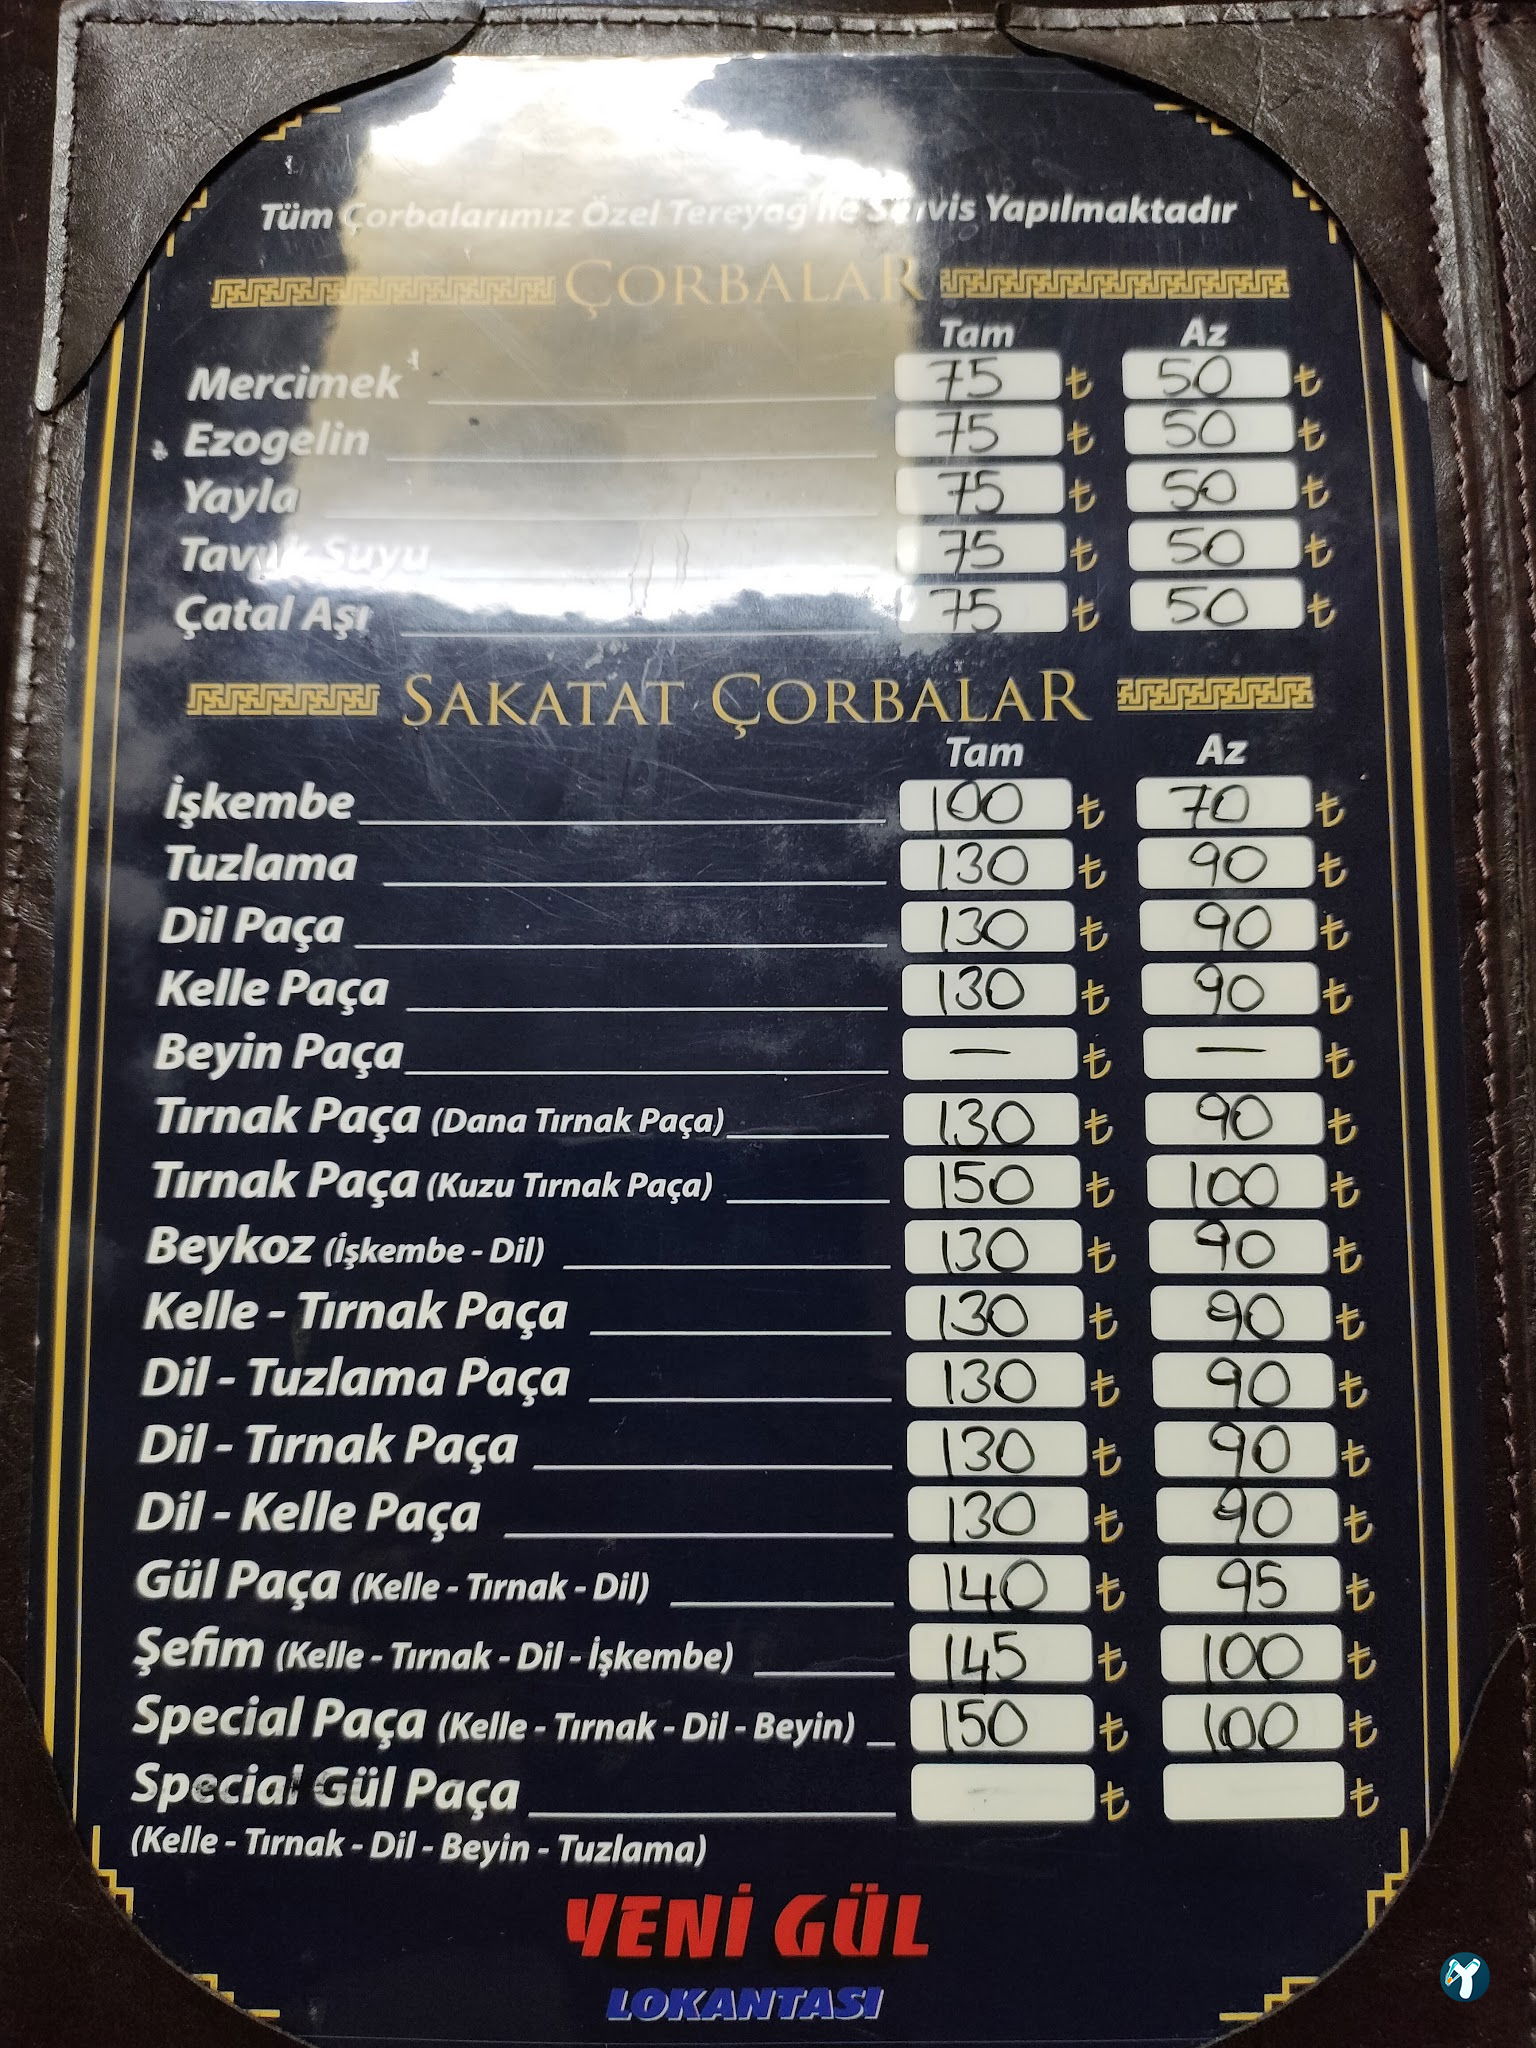 Tüm Çorbalarımız Özel Tereyağ İle Servis Yapılmaktadır
ÇORBALAR
Tam Az
Mercimek 75 ₺ 50 ₺
Ezogelin 75 ₺ 50 ₺
Yayla 75 ₺ 50 ₺
Tavuk Suyu 75 ₺ 50 ₺
Çatal Aşı 75 ₺ 50 ₺
SAKATAT ÇORBALAR
Tam Az
İşkembe 100 ₺ 70 ₺
Tuzlama 130 ₺ 90 ₺
Dil Paça 130 ₺ 90 ₺
Kelle Paça 130 ₺ 90 ₺
Beyin Paça — ₺ — ₺
Tırnak Paça (Dana Tırnak Paça) 130 ₺ 90 ₺
Tırnak Paça (Kuzu Tırnak Paça) 150 ₺ 100 ₺
Beykoz (İşkembe - Dil) 130 ₺ 90 ₺
Kelle - Tırnak Paça 130 ₺ 90 ₺
Dil - Tuzlama Paça 130 ₺ 90 ₺
Dil - Tırnak Paça 130 ₺ 90 ₺
Dil - Kelle Paça 130 ₺ 90 ₺
Gül Paça (Kelle - Tırnak - Dil) 140 ₺ 95 ₺
Şefim (Kelle - Tırnak - Dil - İşkembe) 145 ₺ 100 ₺
Special Paça (Kelle - Tırnak - Dil - Beyin) 150 ₺ 100 ₺
Special Gül Paça ₺ ₺
(Kelle - Tırnak - Dil - Beyin - Tuzlama)
YENİ GÜL
LOKANTASI